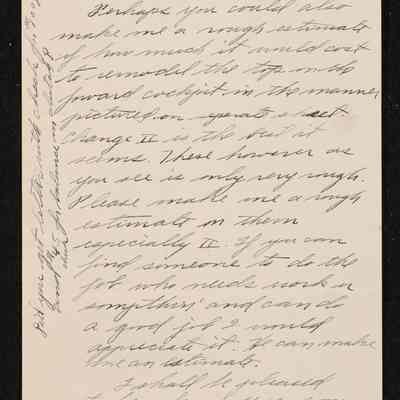 Perhaps you could also
make me a rough estimate
of how much it would cost
to remodel the top on the
foward cockpit in the manner
pictured on separate sheet
Change II is the best it
seems. These however as
you see is only very rough.
Please make me a rough
estimate on them
especially II. If you can
find someone to do the
job who needs work or
sompthins' and can do
a good job I would
appreciate it. He can make
me an estimate.
I shall be pleased
Did you get letter with check for